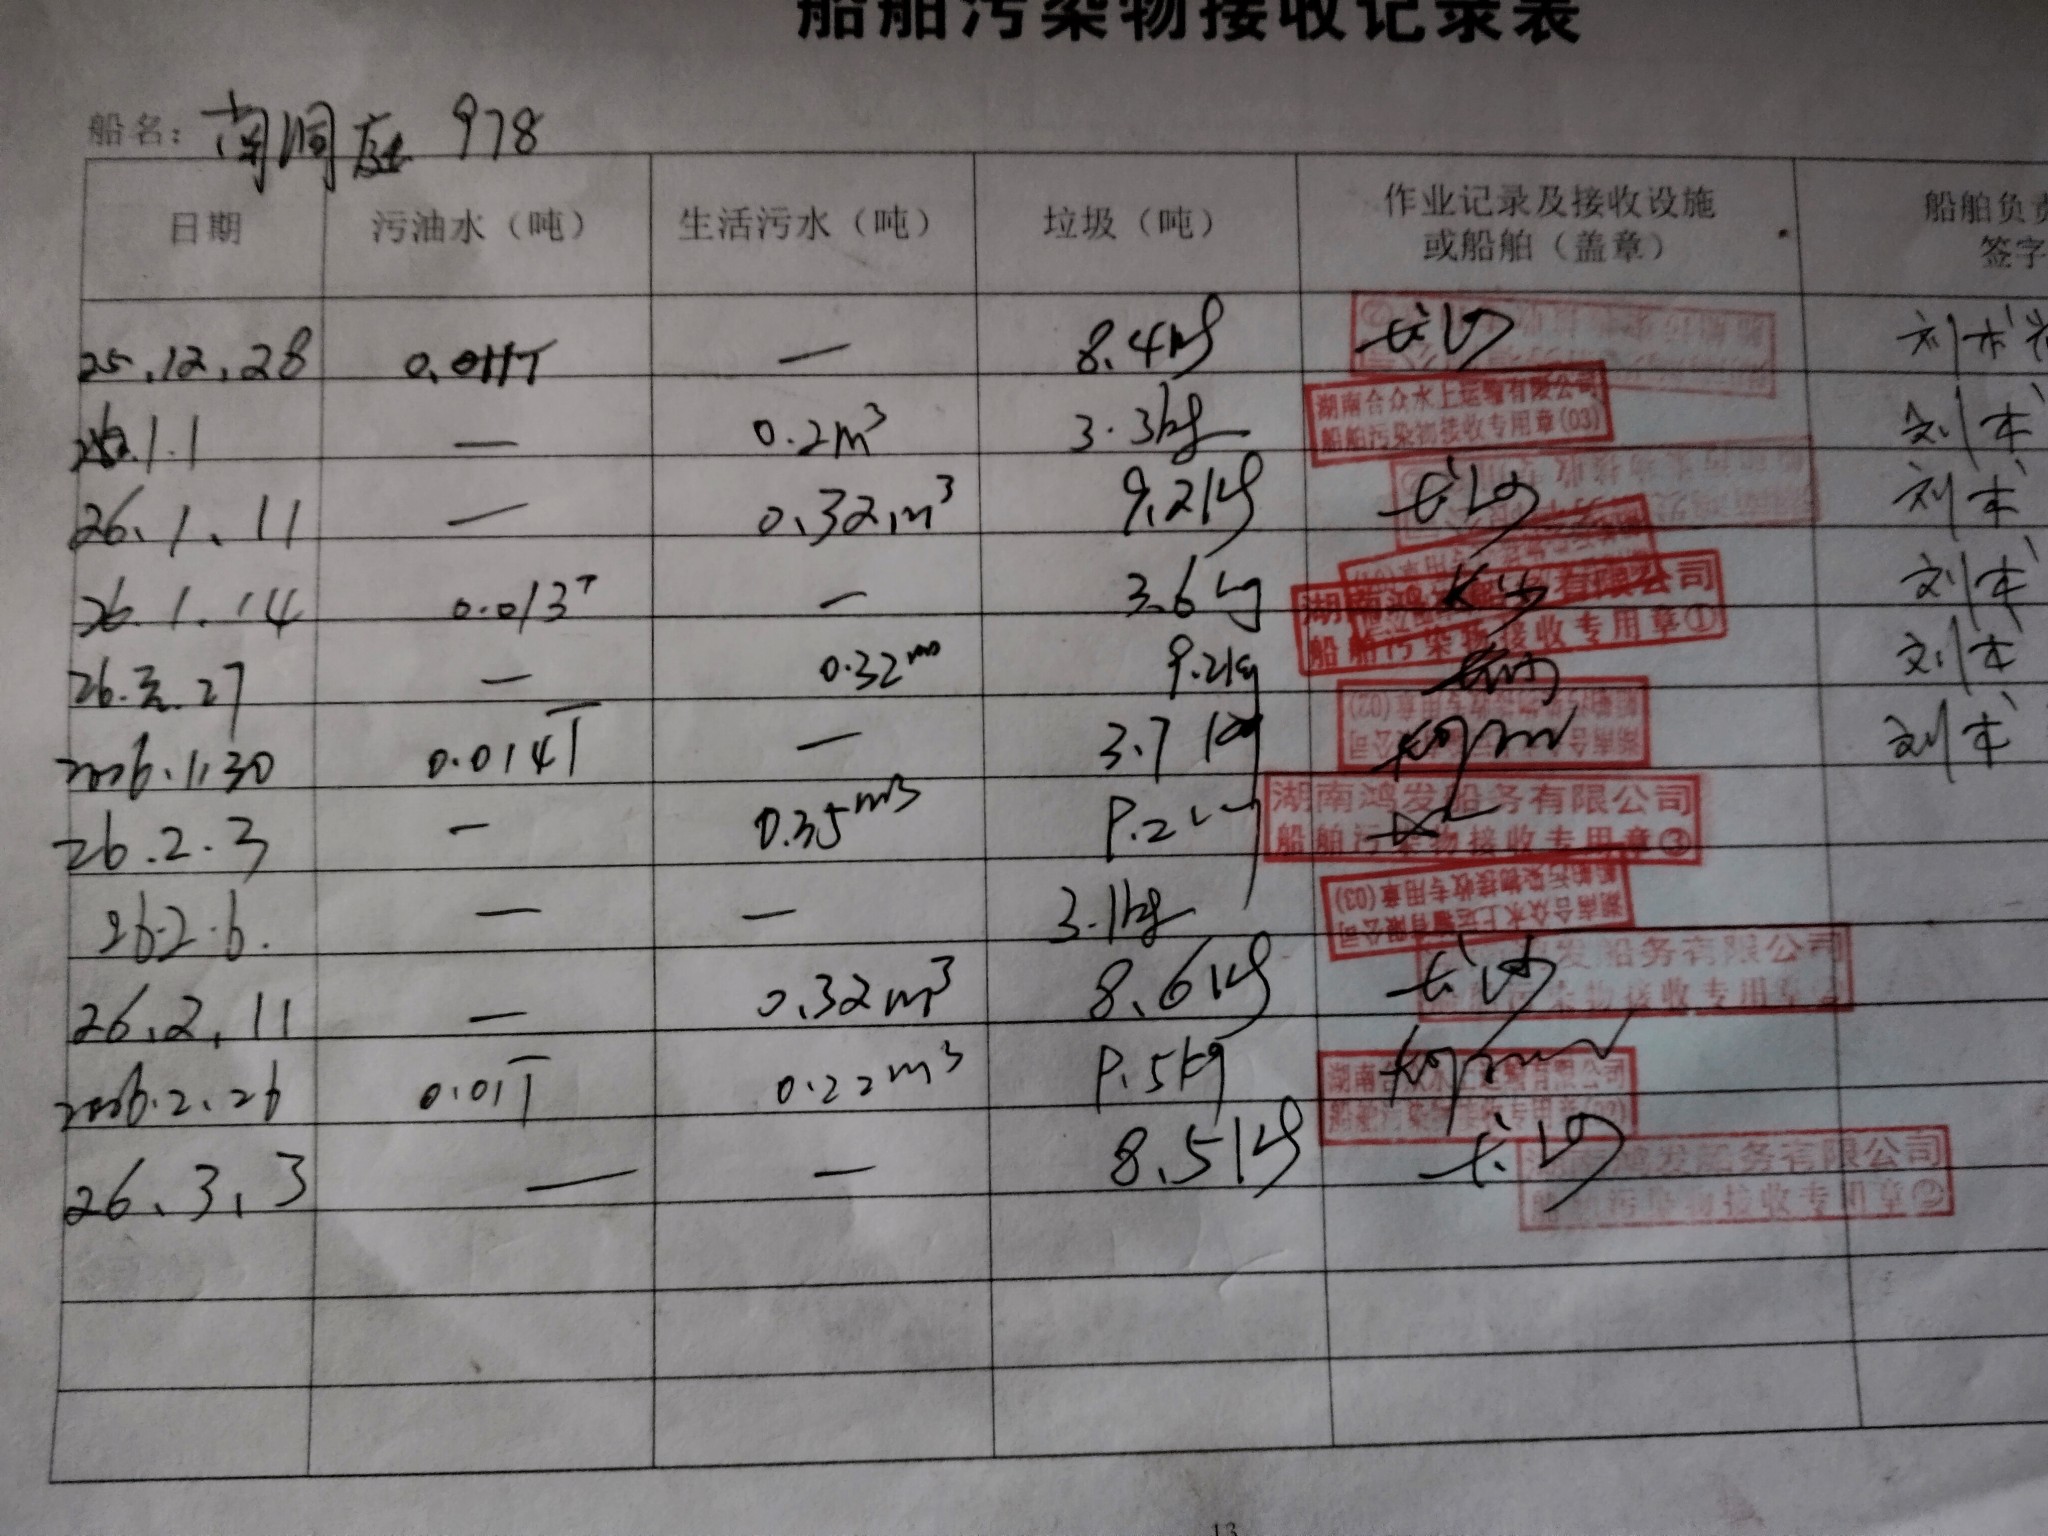 船舶污染物接收记录表
船名：南洞庭 978
日期 污油水（吨） 生活污水（吨） 垃圾（吨） 作业记录及接收设施或船舶（盖章） 船舶负责 签字
25.12.28 0.011T — 8.4kg 长沙 刘本
26.1.1 — 0.2m³ 3.3kg 湖南合众水上运输有限公司 船舶污染物接收专用章(03) 刘本
26.1.11 — 0.32m³ 9.2kg 长沙 刘本
26.1.14 0.013T — 3.6kg 长沙 湖南鸿发船务有限公司 船舶污染物接收专用章① 刘本
26. .27 — 0.32m³ 9.2kg 刘本
2026.1.30 0.014T — 3.7kg 湖南合众水上运输有限公司 船舶污染物接收专用章(02) 刘本
26.2.3 — 0.35m³ 湖南鸿发船务有限公司 船舶污染物接收专用章③
26.2.6. — — 3.1kg 湖南合众水上运输有限公司 船舶污染物接收专用章(03)
26.2.11 — 0.32m³ 8.6kg 长沙 发船务有限公司 船舶污染物接收专用章②
2026.2.26 0.01T 0.22m³ 湖南合众水上运输有限公司 船舶污染物接收专用章(02)
26.3.3 — — 8.5kg 长沙 湖南鸿发船务有限公司 船舶污染物接收专用章②
13